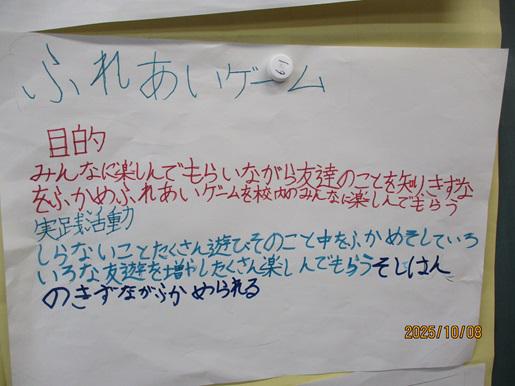 ふれあいゲーム
目的
みんなに楽しんでもらいながら友達のことを知り、きずな
をふかめふれあいゲームを校内のみんなに楽しんでもらう
実践活動
しらないことたくさん遊びそのこと中をふかめそしていろ
いろな友達を増やしたくさん楽しんでもらうそしはん
のきずながふかめられる
2025/10/08